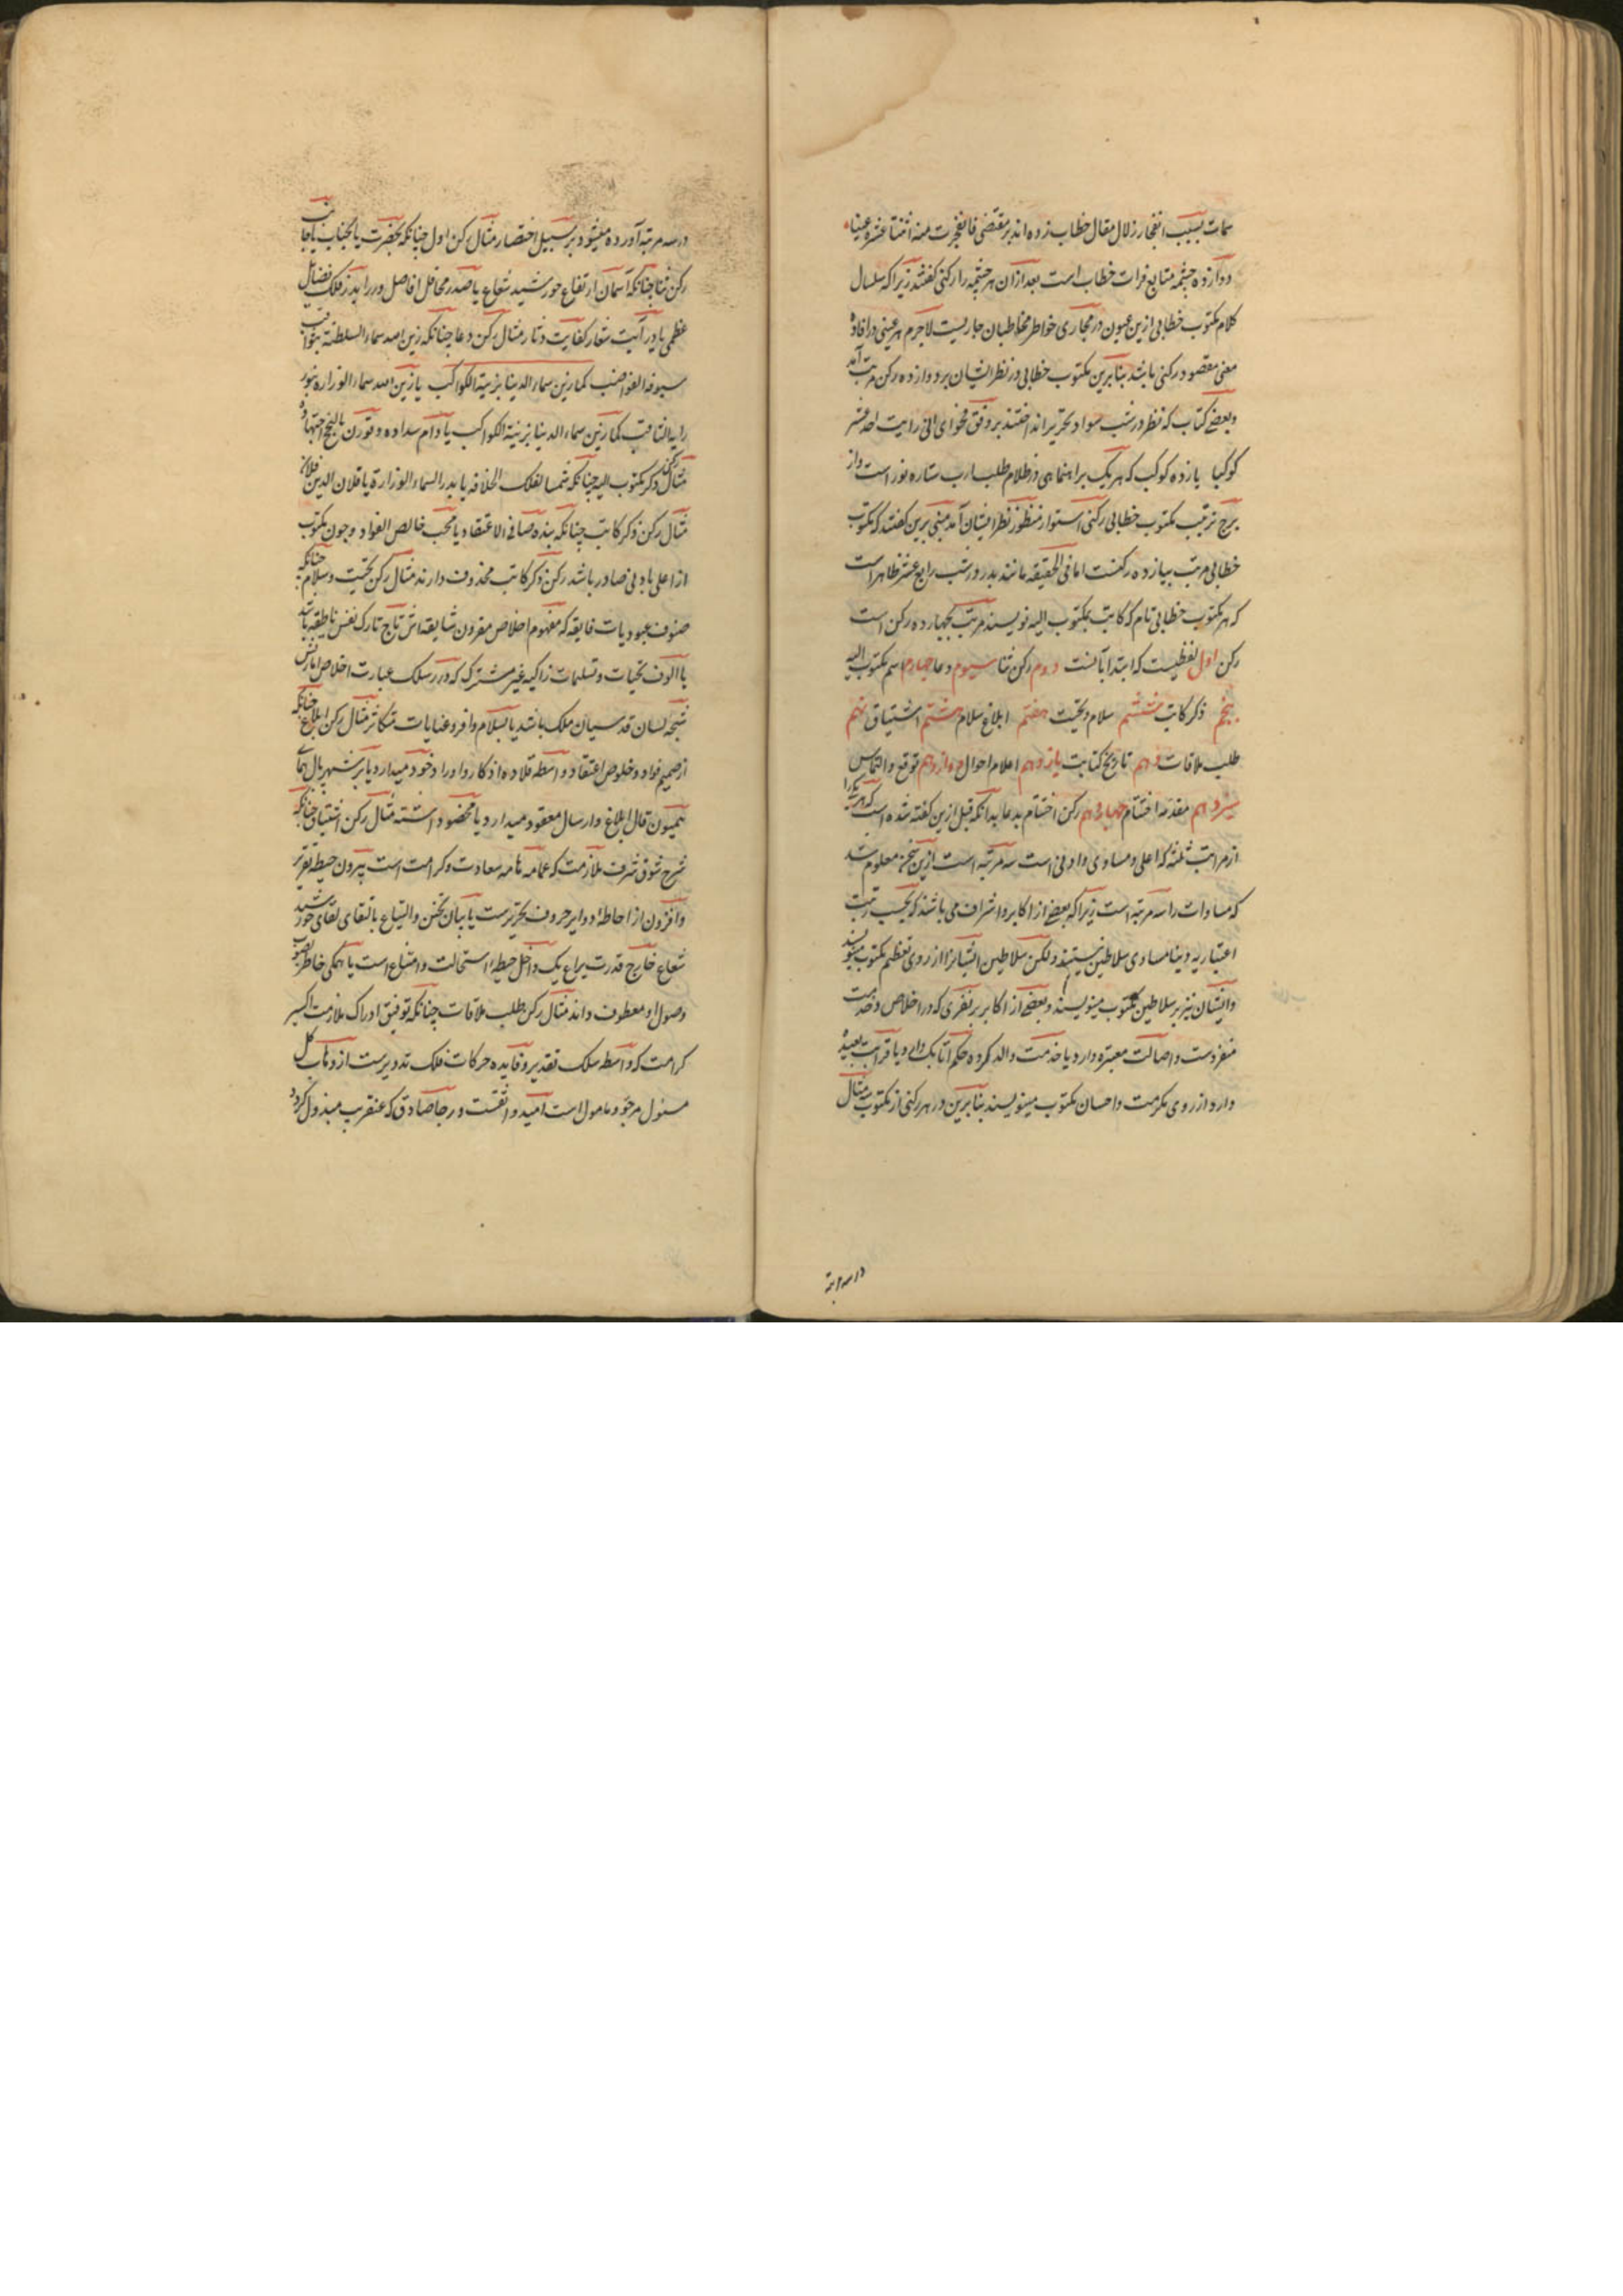 سمات بسبب انفجار زلال مقال خطاب زده اند بر مقتضی فانفجرت منه اثنتا عشرة عینا
دوازده چشمه متابع فرات خطاب است بعد ازان هر چشمه را رکنی گفتند زیرا که سلسال
کلام مکتوب خطابی ازین عیون در مجاری خواطر مخاطبان جاریست لاجرم هر عینی در افادهٔ
معنی مقصود رکنی باشد بنابرین مکتوب خطابی در نظر ایشان بر دوازده رکن مرتب آمد
وبعضی کتاب که نظر در شب سواد تحریر انداختند بر وفق فحوای انی رایت احد عشر
کوکبا یازده کوکب که هریک براهنماهی در ظلام طلب ستاره نور است واز
برج ترتیب مکتوب خطابی رکنی استوار منظور نظر ایشان آمد مبنی برین گفتند که مکتوب
خطابی مرتب بیازده رکنست اما فی الحقیقه مانند بدر در شب رابع عشر ظاهر است
که هر مکتوب خطابی تام که کاتب بمکتوب الیه نویسند مرتب بچهارده رکن است
رکن اول لفظیست که ابتدا بآنست دوم رکن ثنا سیوم دعا چهارم اسم مکتوب الیه
پنجم ذکر کاتب ششم سلام وتحیت هفتم ابلاغ سلام هشتم اشتیاق نهم
طلب ملاقات دهم تاریخ کتابت یازدهم اعلام احوال دوازدهم توقع والتماس
سیزدهم مقدمه اختتام چهاردهم رکن اختتام بدعا بدانکه قبل ازین گفته شده است که هریک را
از مراتب ثلثه که اعلی ومساوی وادنی است سه مرتبه است ازین سخن معلوم شد
که مساوات را سه مرتبه است زیرا که بعضی از اکابر واشراف می باشند که بحسب رتبت
اعتباریه دنیا مساوی سلاطین نیستند ولکن سلاطین ایشانرا از روی تعظیم مکتوب مینویسند
وایشان نیز بر سلاطین مکتوب مینویسند وبعضی از اکابر بر نفری که در اخلاص وخدمت
منفردست واصالت معتبره دارد یا خدمت والد کرده حکم اتابک دارد یا قرابت بعیده
دارد از روی مکرمت واحسان مکتوب مینویسند بنابرین در هر رکنی از مکتوب مثال
در سه مرتبه
در سه مرتبه آورده میشود بر سبیل اختصار مثال رکن اول چنانکه بحضرت یا بجناب یا بجانب
رکن ثنا چنانکه آسمان ارتفاع خورشید شعاع یا صدر محافل افاضل ودر را بدر فلک فضایل
عظمی یا در آیت شعار کفایت دثار مثال رکن دعا چنانکه زین الله سماء السلطنة بثواقب
سیوفه القواضب کما زین سماء الدینا بزینة الکواکب یا زین الله سماء الوزارة بنور
رایه الثاقب کما زین سماء الدینا بزینة الکواکب یا دام سداده وقورن بالنجح اجتهاده
مثال رکن ذکر مکتوب الیه چنانکه شمسا لفلک الخلافه یا بدر السماء الوزارة یا فلان الدین فلان
مثال رکن ذکر کاتب چنانکه بنده صافی الاعتقاد یا محب خالص الفواد وچون مکتوب
از اعلی بادنی صادر باشد رکن ذکر کاتب محذوف دارند مثال رکن تحیت وسلام چنانکه
صنوف عبودیات فایقه که مفهوم اخلاص مقرون شایقه اش تاج تارک نفس ناطقه باشد
یا الوف تحیات وتسلیمات زاکیه غیر مشترک که در سلک عبارت اخلاص
سبحه لسان قدسیان ملک باشد یا سلام وافر وعنایات متکاثر مثال رکن ابلاغ چنانکه
از صمیم فواد وخلوص اعتقاد واسطه قلاده اذکار واوراد خود میدارد یا بر شهپر بال همای
همیون فال ابلاغ وارسال معقود میدارد یا مخصود داشته مثال رکن اشتیاق چنانکه
شرح شوق شرف ملازمت که عمامه هامه سعادت وکرامت است بیرون حیطه تقریر
وافزون از احاطهٔ دوایر حروف تحریرست یا بیان تحنن والتیاع بالتقای لقای خورشید
شعاع خارج قدرت یراع یک داخل حیطهٔ استحالت وامتناع است یا همگی خاطر بصوب
وصول او معطوف داند مثال رکن طلب ملاقات چنانکه توفیق ادراک ملازمت اکسیر
کرامت که واسطه سلک تقدیر وفایده حرکات فلک تدویرست از وهاب کل
مسئول مرجو ومامول است امید واثقست ورجا صادق که عنقریب مبذول گردد